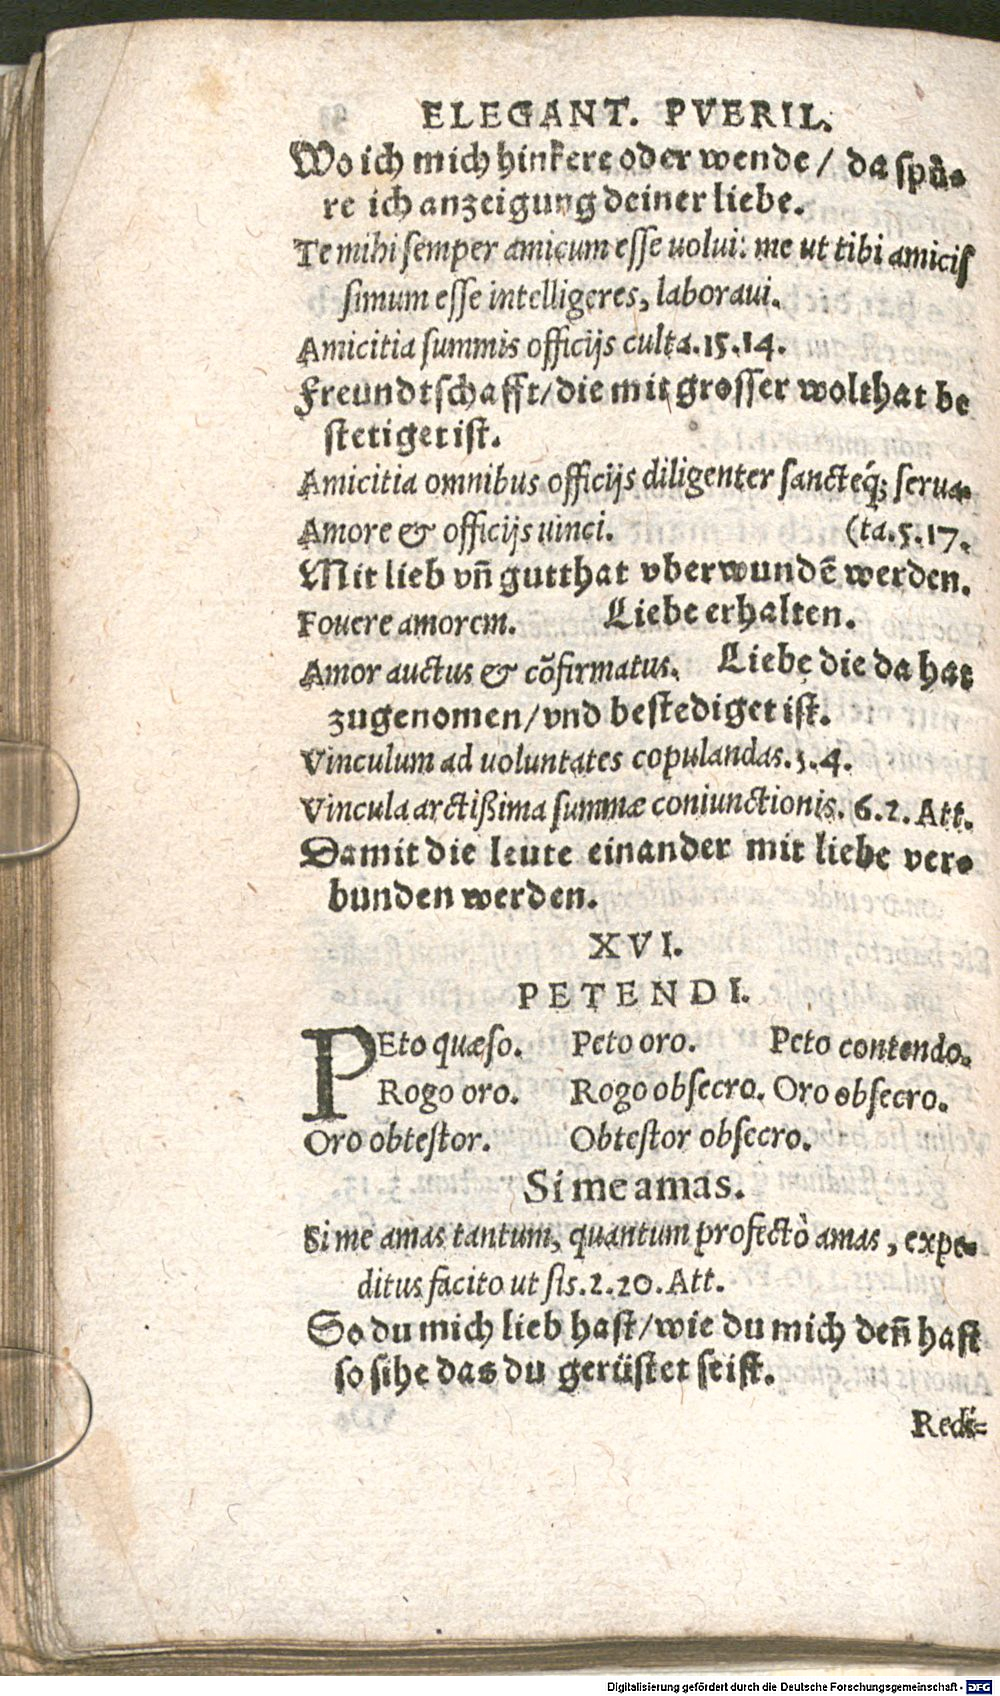 ELEGANT. PVERIL.
Wo ich mich hinkere oder wende / da spü⸗
re ich anzeigung deiner liebe.
Te mihi semper amicum esse uolui: me ut tibi amicis
simum esse intelligeres, laboraui.
Amicitia summis officijs culta. 15. 14.
Freundtschafft/die mit grosser wolthat be
stetiget ist.
Amicitia omnibus officijs diligenter sancteq́; serua-
Amore & officijs uinci. (ta. 5. 17.
Mit lieb vn̄ gutthat vberwundē werden.
Fouere amorem. Liebe erhalten.
Amor auctus & cõfirmatus. Liebe die da hat
zugenomen/vnd bestediget ist.
Vinculum ad uoluntates copulandas. 3. 4.
Vincula arctißima summæ coniunctionis. 6. 2. Att.
Damit die leute einander mit liebe ver⸗
bunden werden.
XVI.
PETENDI.
PEto quæso. Peto oro. Peto contendo.
Rogo oro. Rogo obsecro. Oro obsecro.
Oro obtestor. Obtestor obsecro.
Si me amas.
Si me amas tantum, quantum profectò amas, expe-
ditus facito ut sis. 2. 20. Att.
So du mich lieb hast/wie du mich den̄ hast
so sihe das du gerüstet seist.
Redi=
Digitalisierung gefördert durch die Deutsche Forschungsgemeinschaft - DFG